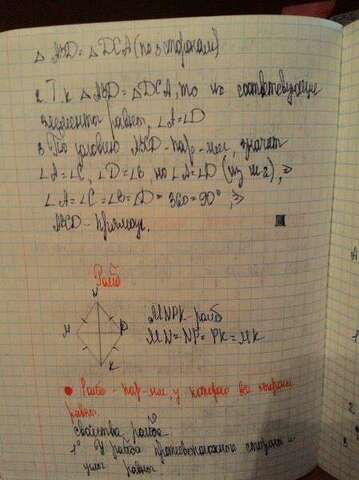 △ ABD = △ DCA (по 3 сторонам)
2. Т.к △ ABD = △ DCA, то их соответствующие
элементы равны, ∠A = ∠D
3. По условию ABCD - пар-мм, значит
∠A = ∠C, ∠D = ∠B, но ∠A = ∠D (из п 2), ⇒
∠A = ∠C = ∠B = ∠D = 360 = 90°, ⇒
ABCD - прямоуг.
Ромб
N
M
P
K
MNPK - ромб
MN = NP = PK = MK
• Ромб - пар-мм, у которого все стороны
равны.
свойства ромба.
1° У ромба противоположные стороны и
углы равны